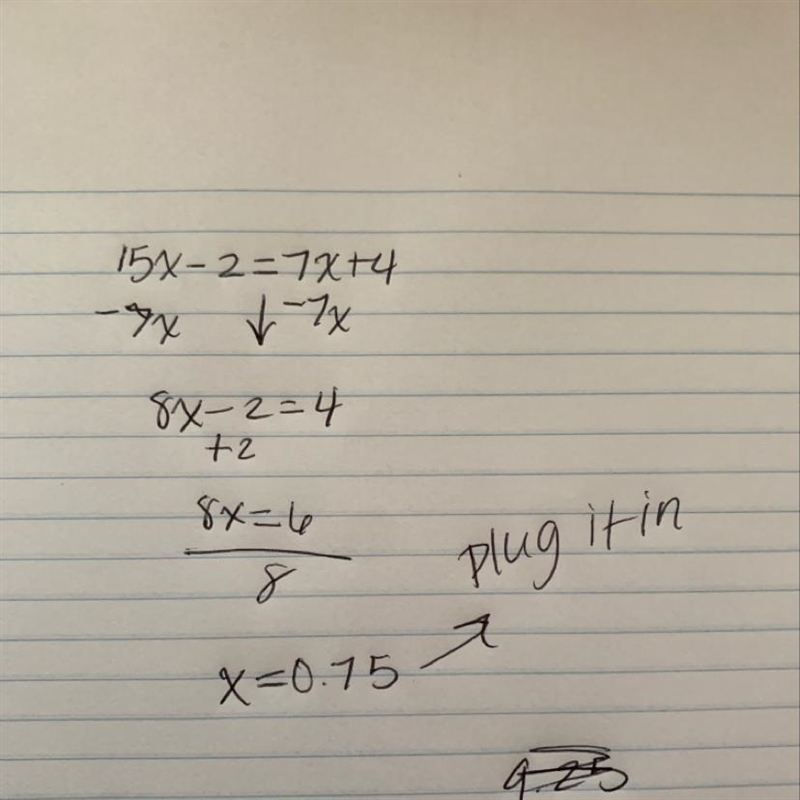 15x-2=7x+4
-7x ↓ -7x
8x-2=4
+2
8x=6
8
plug it in
x=0.75
9.25